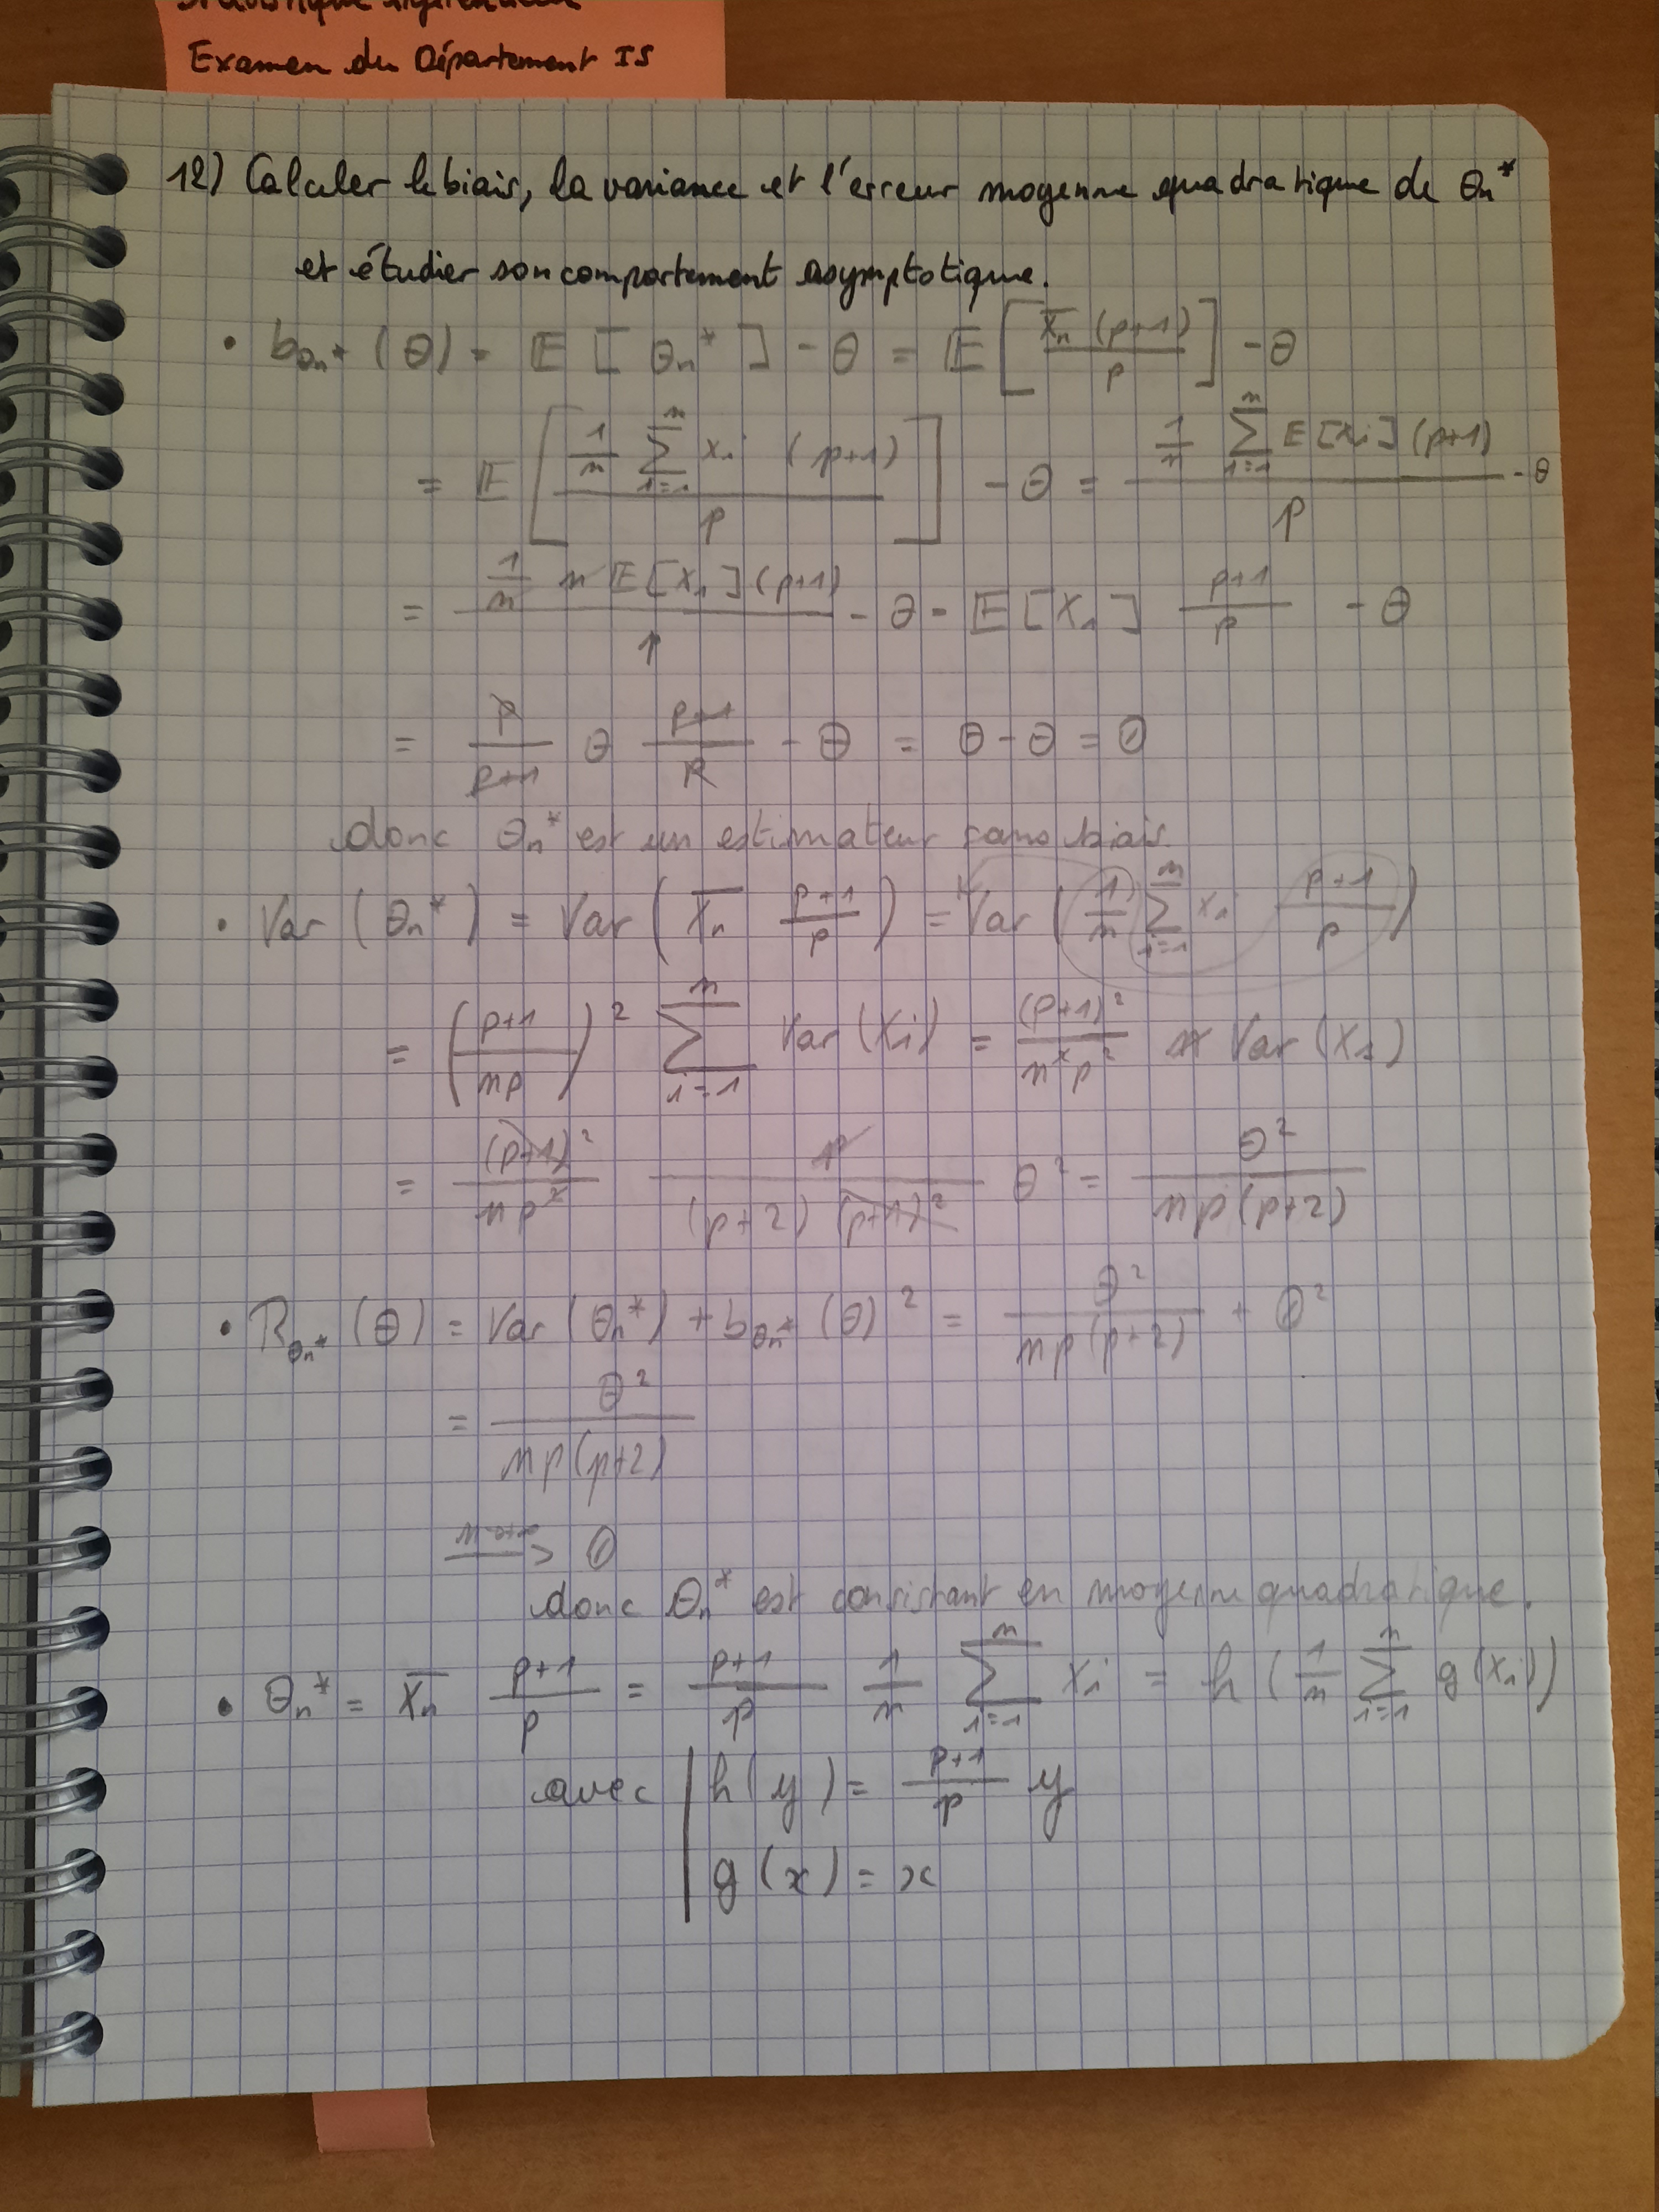 Examen du Département IS
12) Calculer le biais, la variance et l'erreur moyenne quadratique de θn*
et étudier son comportement asymptotique.
• bθn* (θ) = E [ θn* ] - θ = E [ X̄n (p+1) / p ] - θ
= E [ 1/n ∑_{i=1}^{n} Xi (p+1) / p ] - θ = 1/n ∑_{i=1}^{n} E[Xi] (p+1) / p - θ
= 1/n n E[X1] (p+1) / p - θ = E[X1] p+1/p - θ
= p/p+1 θ p+1/p - θ = θ - θ = 0
donc θn* est un estimateur sans biais.
• Var (θn*) = Var ( X̄n p+1/p ) = Var ( 1/n ∑_{i=1}^{n} Xi p+1/p )
= ( p+1/np )² ∑_{i=1}^{n} Var (Xi) = (p+1)²/n²p² n Var (X1)
= (p+1)²/np² p/(p+2)(p+1)² θ² = θ²/np(p+2)
• Rθn* (θ) = Var (θn*) + bθn* (θ)² = θ²/np(p+2) + 0²
= θ²/np(p+2)
n→+∞ → 0
donc θn* est consistant en moyenne quadratique.
• θn* = X̄n p+1/p = p+1/p 1/n ∑_{i=1}^{n} Xi = h ( 1/n ∑_{i=1}^{n} g(Xi) )
avec | h(y) = p+1/p y
| g(x) = x